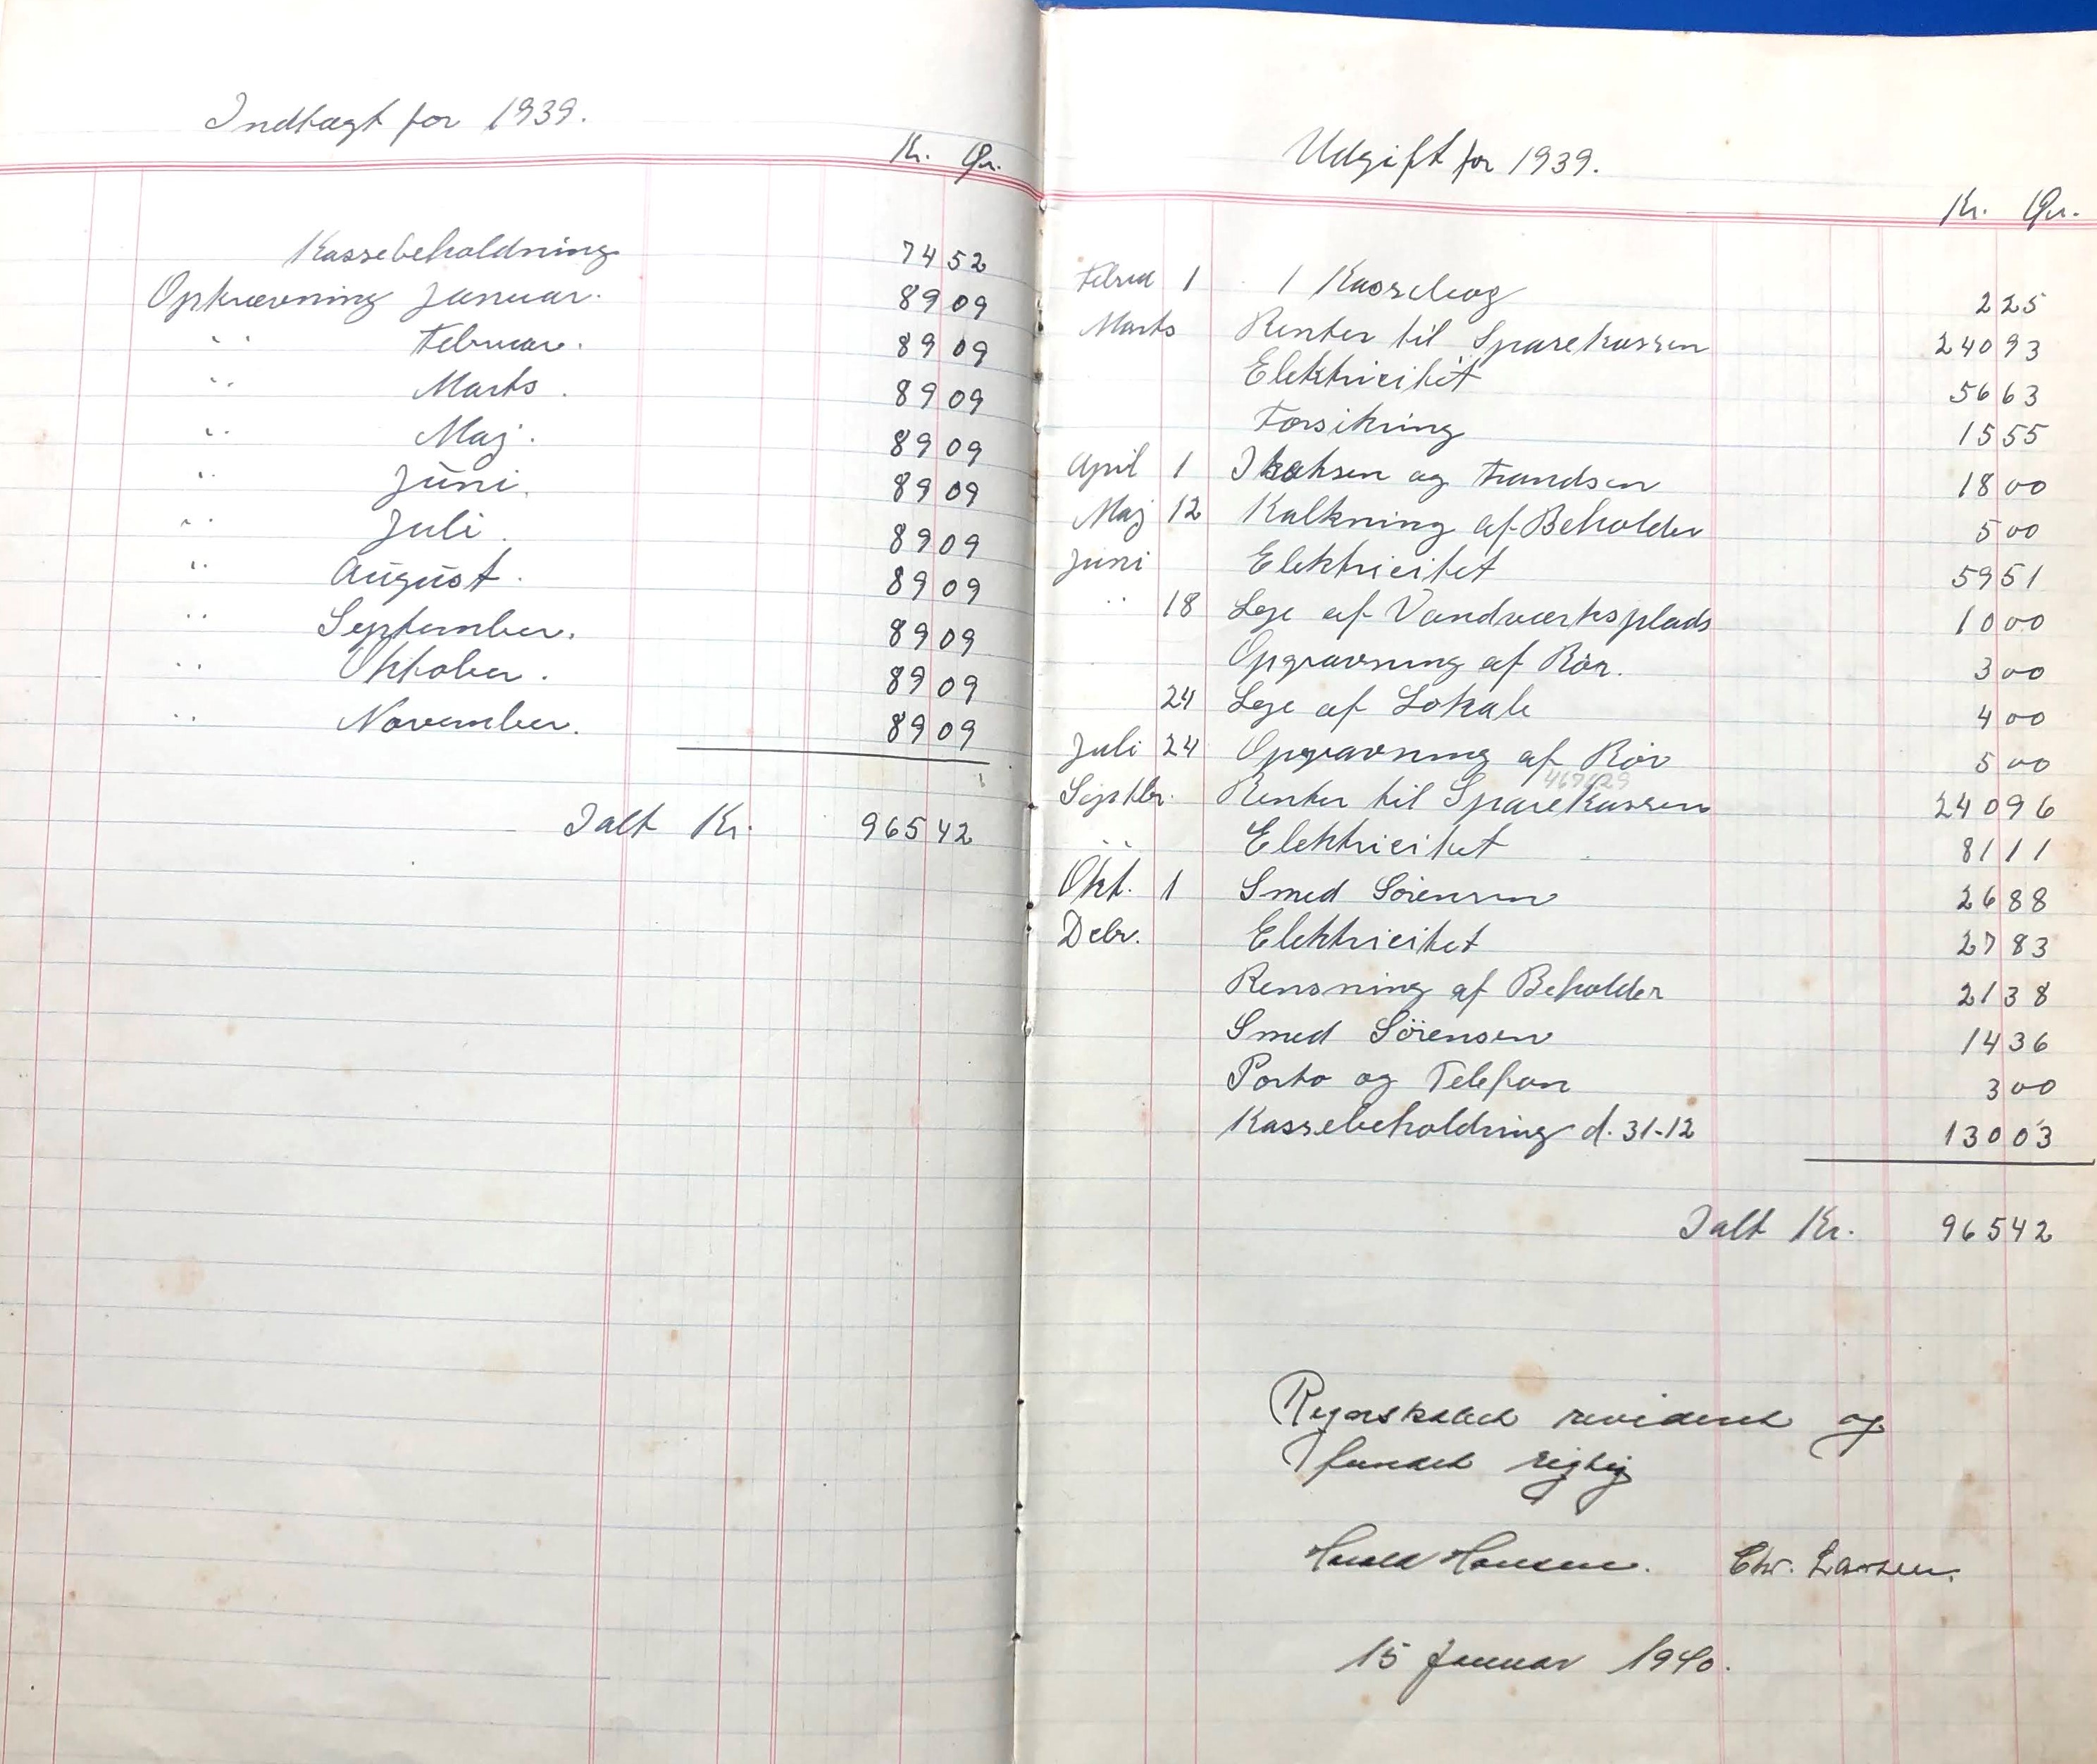 Indtægt for 1939.
Kr. Ør.
Kassebeholdning 74 52
Opkrævning Januar. 89 09
" Februar. 89 09
" Marts. 89 09
" Maj. 89 09
" Juni. 89 09
" Juli. 89 09
" August. 89 09
" September. 89 09
" Oktober. 89 09
" November. 89 09
Ialt Kr. 965 42
Udgift for 1939.
Kr. Ør.
1 1 Kassebog 2 25
Marts Renter til Sparekassen 240 93
Elektricitet 56 63
Forsikring 15 55
April 1 og Frandsen 18 00
Maj 12 Kalkning af Beholder 5 00
Juni Elektricitet 59 51
" 18 Leje af Vandværksplads 10 00
Opgravning af Rör. 3 00
24 Leje af Lokale 4 00
Juli 24 Opgravning af Rör 5 00
Septbr. Renter til Sparekassen 240 96
" Elektricitet 81 11
Okt. 1 Smed Sörensen 26 88
Debr. Elektricitet 27 83
Rensning af Beholder 21 38
Smed Sörensen 14 36
Porto og Telefon 3 00
Kassebeholdning d. 31-12 130 03
Ialt Kr. 965 42
Regnskabet revideret og
fundet rigtig
Harald Hansen. Chr. Larsen.
15 Januar 1940.